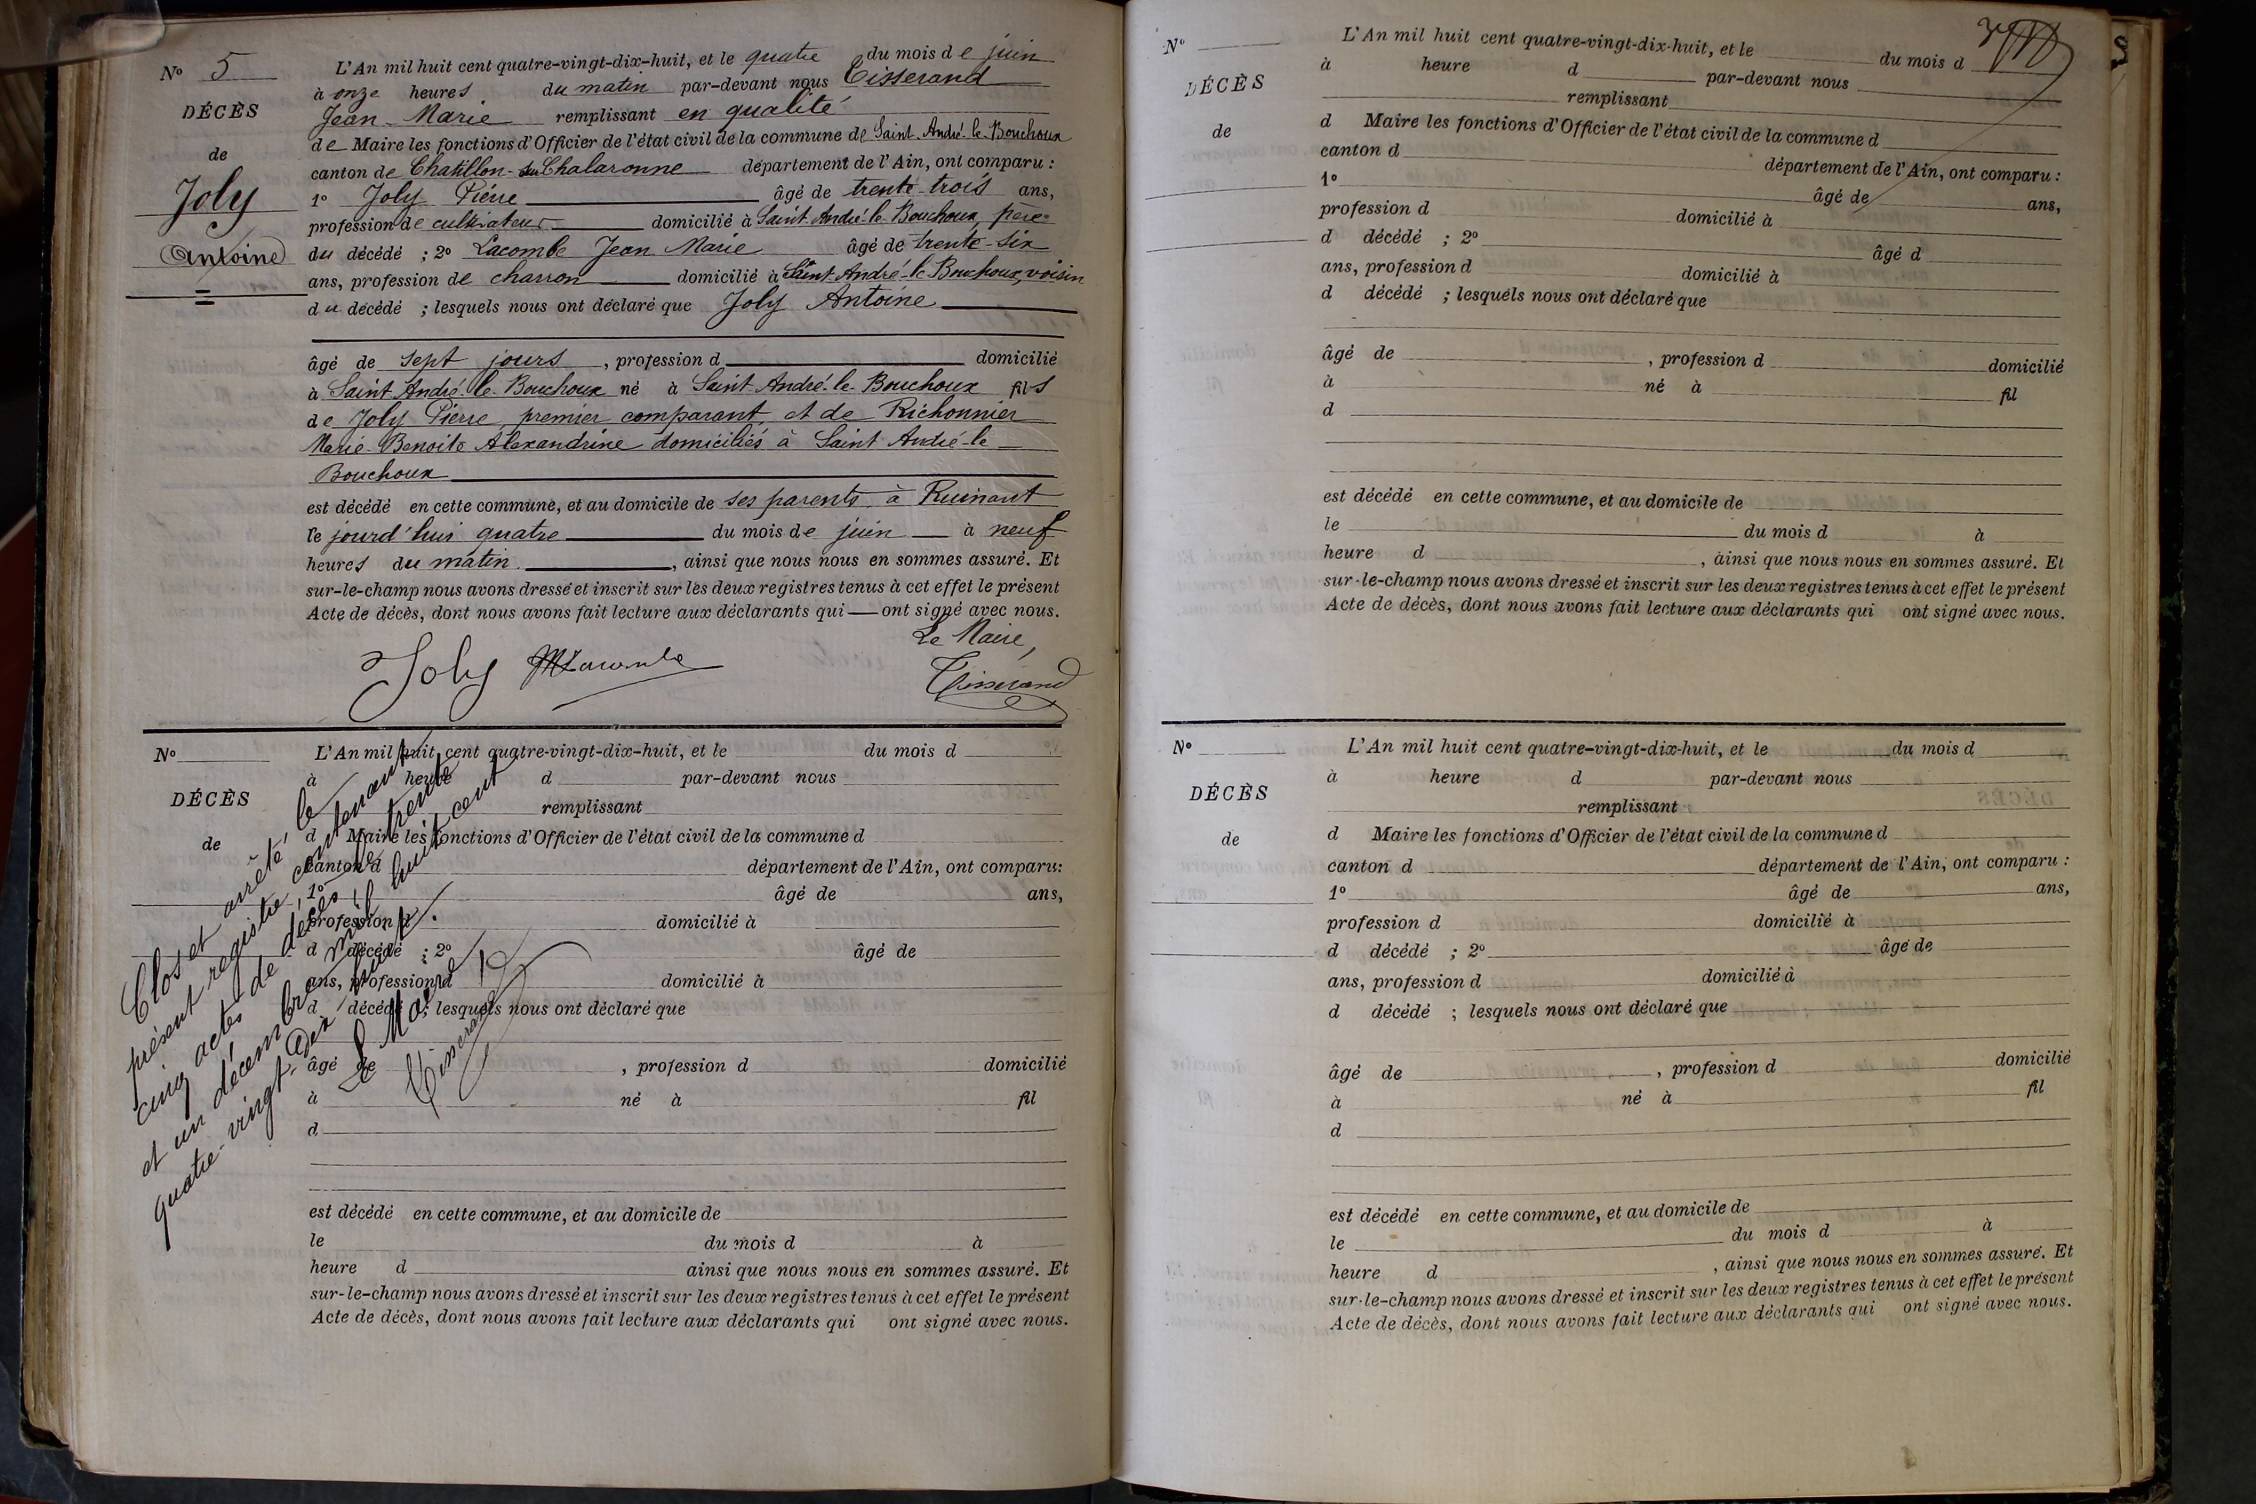 N° 5
DÉCÈS
de
Joly
Antoine
L'An mil huit cent quatre-vingt-dix-huit, et le quatre du mois de juin
à onze heures du matin par-devant nous Tisserand
Jean Marie remplissant en qualité
de Maire les fonctions d'Officier de l'état civil de la commune de Saint-André-le-Bouchoux
canton de Chatillon-sur-Chalaronne département de l'Ain, ont comparu :
1° Joly Pierre âgé de trente trois ans,
profession de cultivateur domicilié à Saint-André-le-Bouchoux, père
du décédé ; 2° Lacombe Jean Marie âgé de trente-six
ans, profession de charron domicilié à Saint-André-le-Bouchoux, voisin
du décédé ; lesquels nous ont déclaré que Joly Antoine
âgé de sept jours, profession d domicilié
à Saint-André-le-Bouchoux né à Saint-André-le-Bouchoux fils
de Joly Pierre, premier comparant, et de Richonnier
Marie-Benoite Alexandrine domiciliés à Saint-André-le-
Bouchoux
est décédé en cette commune, et au domicile de ses parents à Ruinant
le jourd'hui quatre du mois de juin à neuf
heures du matin, ainsi que nous nous en sommes assuré. Et
sur-le-champ nous avons dressé et inscrit sur les deux registres tenus à cet effet le présent
Acte de décès, dont nous avons fait lecture aux déclarants qui — ont signé avec nous.
Le Maire,
Joly JMLacombe Tisserand
N°
DÉCÈS
de
L'An mil huit cent quatre-vingt-dix-huit, et le du mois d
à heure d par-devant nous
remplissant
d Maire les fonctions d'Officier de l'état civil de la commune d
canton d département de l'Ain, ont comparu :
1° âgé de ans,
profession d domicilié à
d décédé ; 2° âgé de
ans, profession d domicilié à
d décédé ; lesquels nous ont déclaré que
âgé de , profession d domicilié
à né à fil
d
est décédé en cette commune, et au domicile de
le du mois d à
heure d ainsi que nous nous en sommes assuré. Et
sur-le-champ nous avons dressé et inscrit sur les deux registres tenus à cet effet le présent
Acte de décès, dont nous avons fait lecture aux déclarants qui ont signé avec nous.
Clos et arrêté, le
présent registre, contenant
cinq actes de décès, le trente
et un décembre mil huit cent
quatre-vingt-dix huit.
Le Maire
Tisserand
N°
DÉCÈS
de
L'An mil huit cent quatre-vingt-dix-huit, et le du mois d
à heure d par-devant nous
remplissant
d Maire les fonctions d'Officier de l'état civil de la commune d
canton d département de l'Ain, ont comparu :
1° âgé de ans,
profession d domicilié à
d décédé ; 2° âgé d
ans, profession d domicilié à
d décédé ; lesquels nous ont déclaré que
âgé de , profession d domicilié
à né à fil
d
est décédé en cette commune, et au domicile de
le du mois d à
heure d , ainsi que nous nous en sommes assuré. Et
sur-le-champ nous avons dressé et inscrit sur les deux registres tenus à cet effet le présent
Acte de décès, dont nous avons fait lecture aux déclarants qui ont signé avec nous.
N°
DÉCÈS
de
L'An mil huit cent quatre-vingt-dix-huit, et le du mois d
à heure d par-devant nous
remplissant
d Maire les fonctions d'Officier de l'état civil de la commune d
canton d département de l'Ain, ont comparu :
1° âgé de ans,
profession d domicilié à
d décédé ; 2° âgé de
ans, profession d domicilié à
d décédé ; lesquels nous ont déclaré que
âgé de , profession d domicilié
à né à fil
d
est décédé en cette commune, et au domicile de
le du mois d à
heure d , ainsi que nous nous en sommes assuré. Et
sur-le-champ nous avons dressé et inscrit sur les deux registres tenus à cet effet le présent
Acte de décès, dont nous avons fait lecture aux déclarants qui ont signé avec nous.